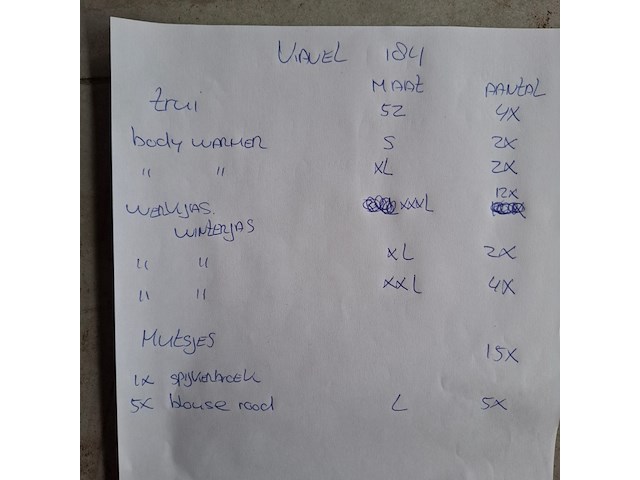 VIAVEL 184
MAAT AANTAL
trui 52 4X
body WARMER S 2X
" " XL 2X
WERKJAS. XXXL 12X
WINTERJAS
" " XL 2X
" " XXL 4X
MutSJES 15X
1X spijkerbroek
5X blouse rood L 5X